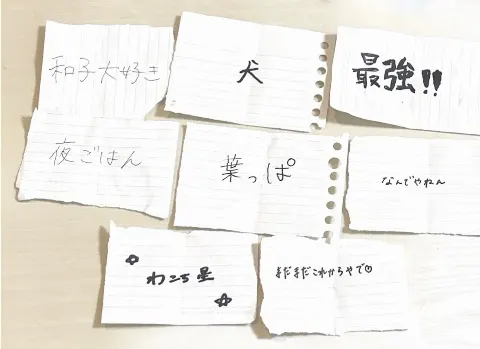 和子大好き
犬
最強!!
夜ごはん
葉っぱ
なんでやねん
☆ わこち星 ☆
まだまだこれからやで☺